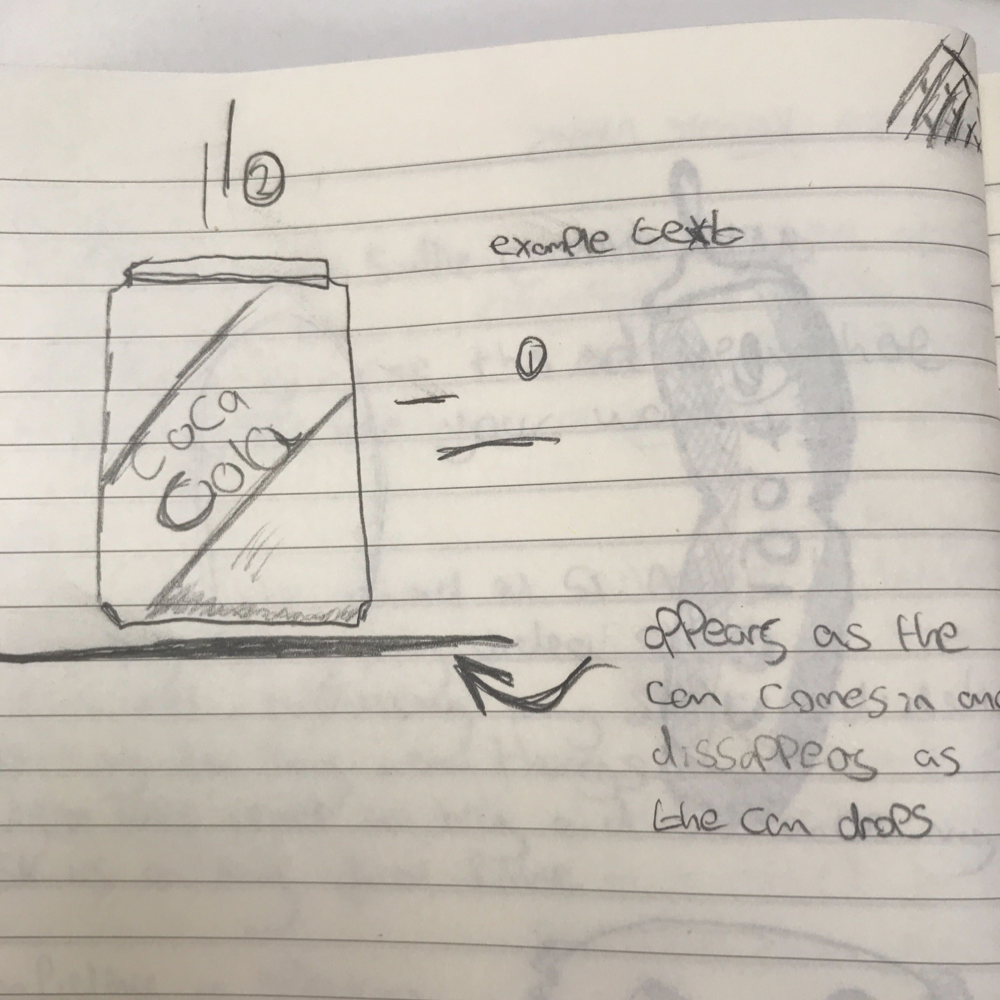 ②
example text
①
Coca
Cola
appears as the
can comes in and
dissappears as
the can drops